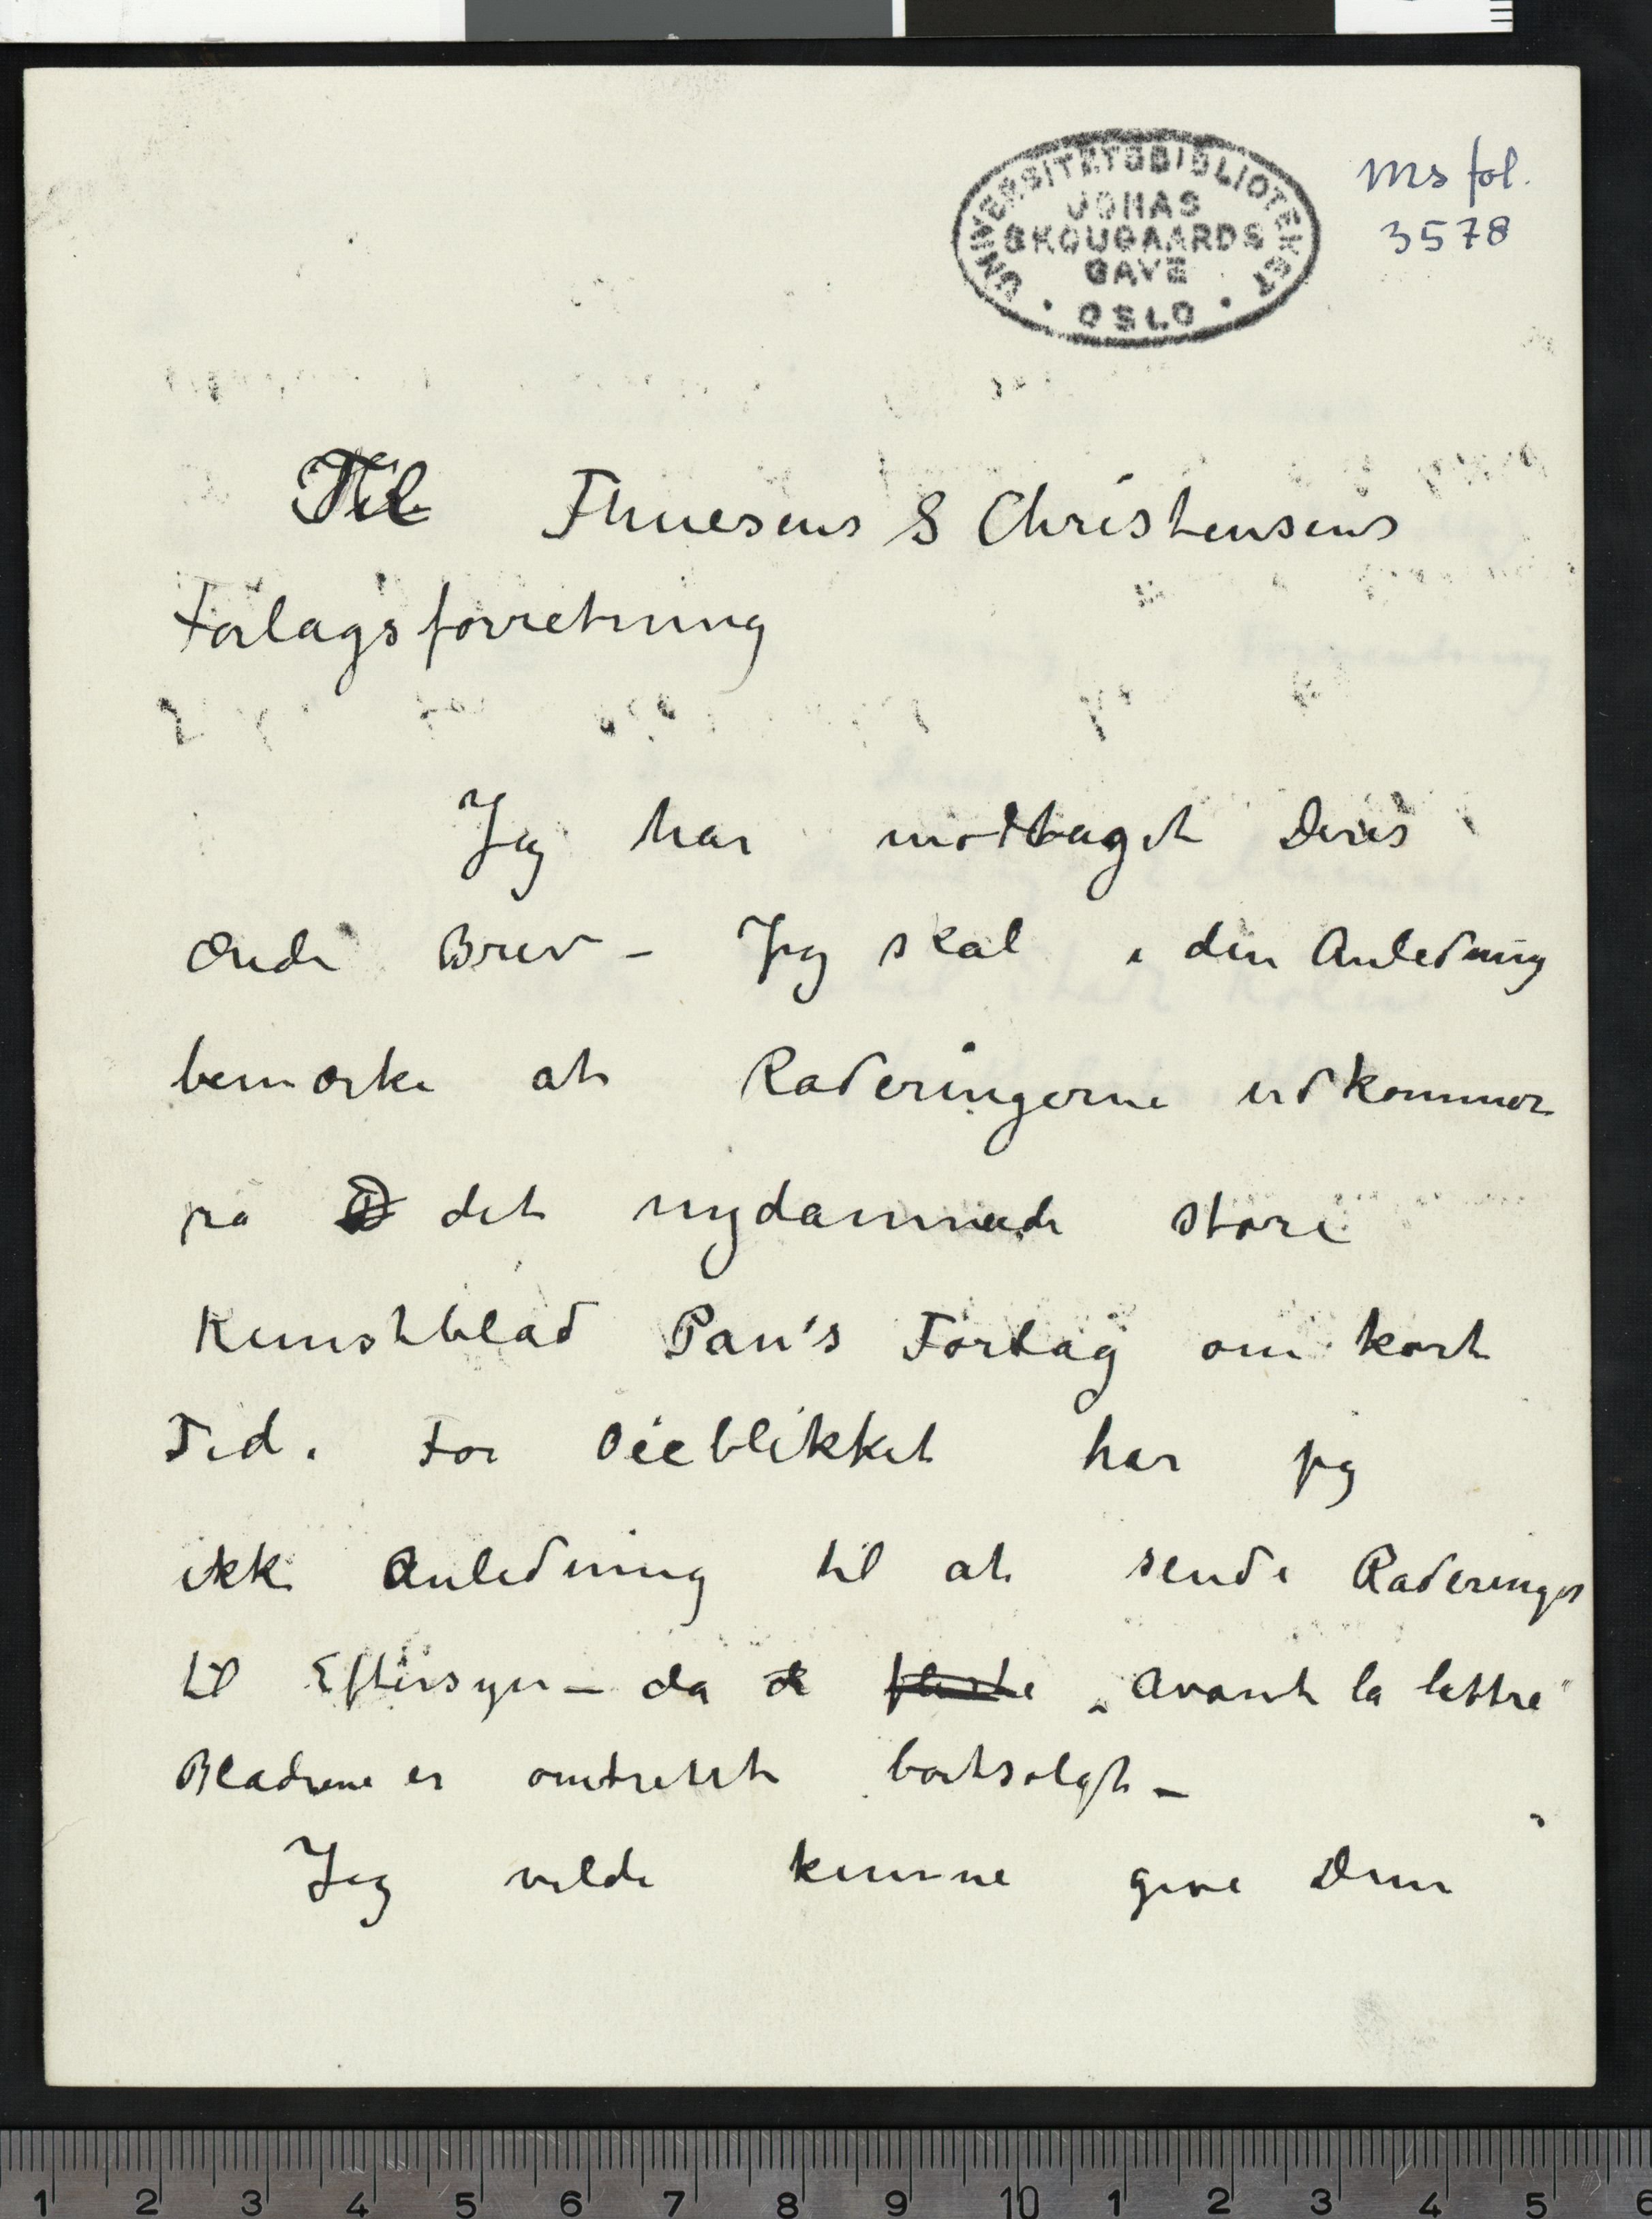 Ms fol.
3578
UNIVERSITETSBIBLIOTEKET
JONAS
SKOUGAARDS
GAVE
OSLO
Til Thuesens & Christensens
Forlagsforretning
Jeg har modtaget Deres
ærede Brev – Jeg skal i den Anledning
bemærke at Raderingerne udkommer
på det nydannede store
Kunstblad Pan's Forlag om kort
Tid. For Øieblikket har jeg
ikke Anledning til at sende Raderinger
til Eftersyn – da de fleste „avant la lettre"
Bladene er omtrent bortsolgt –
Jeg vilde kunne give Dem
1 2 3 4 5 6 7 8 9 10 1 2 3 4 5 6